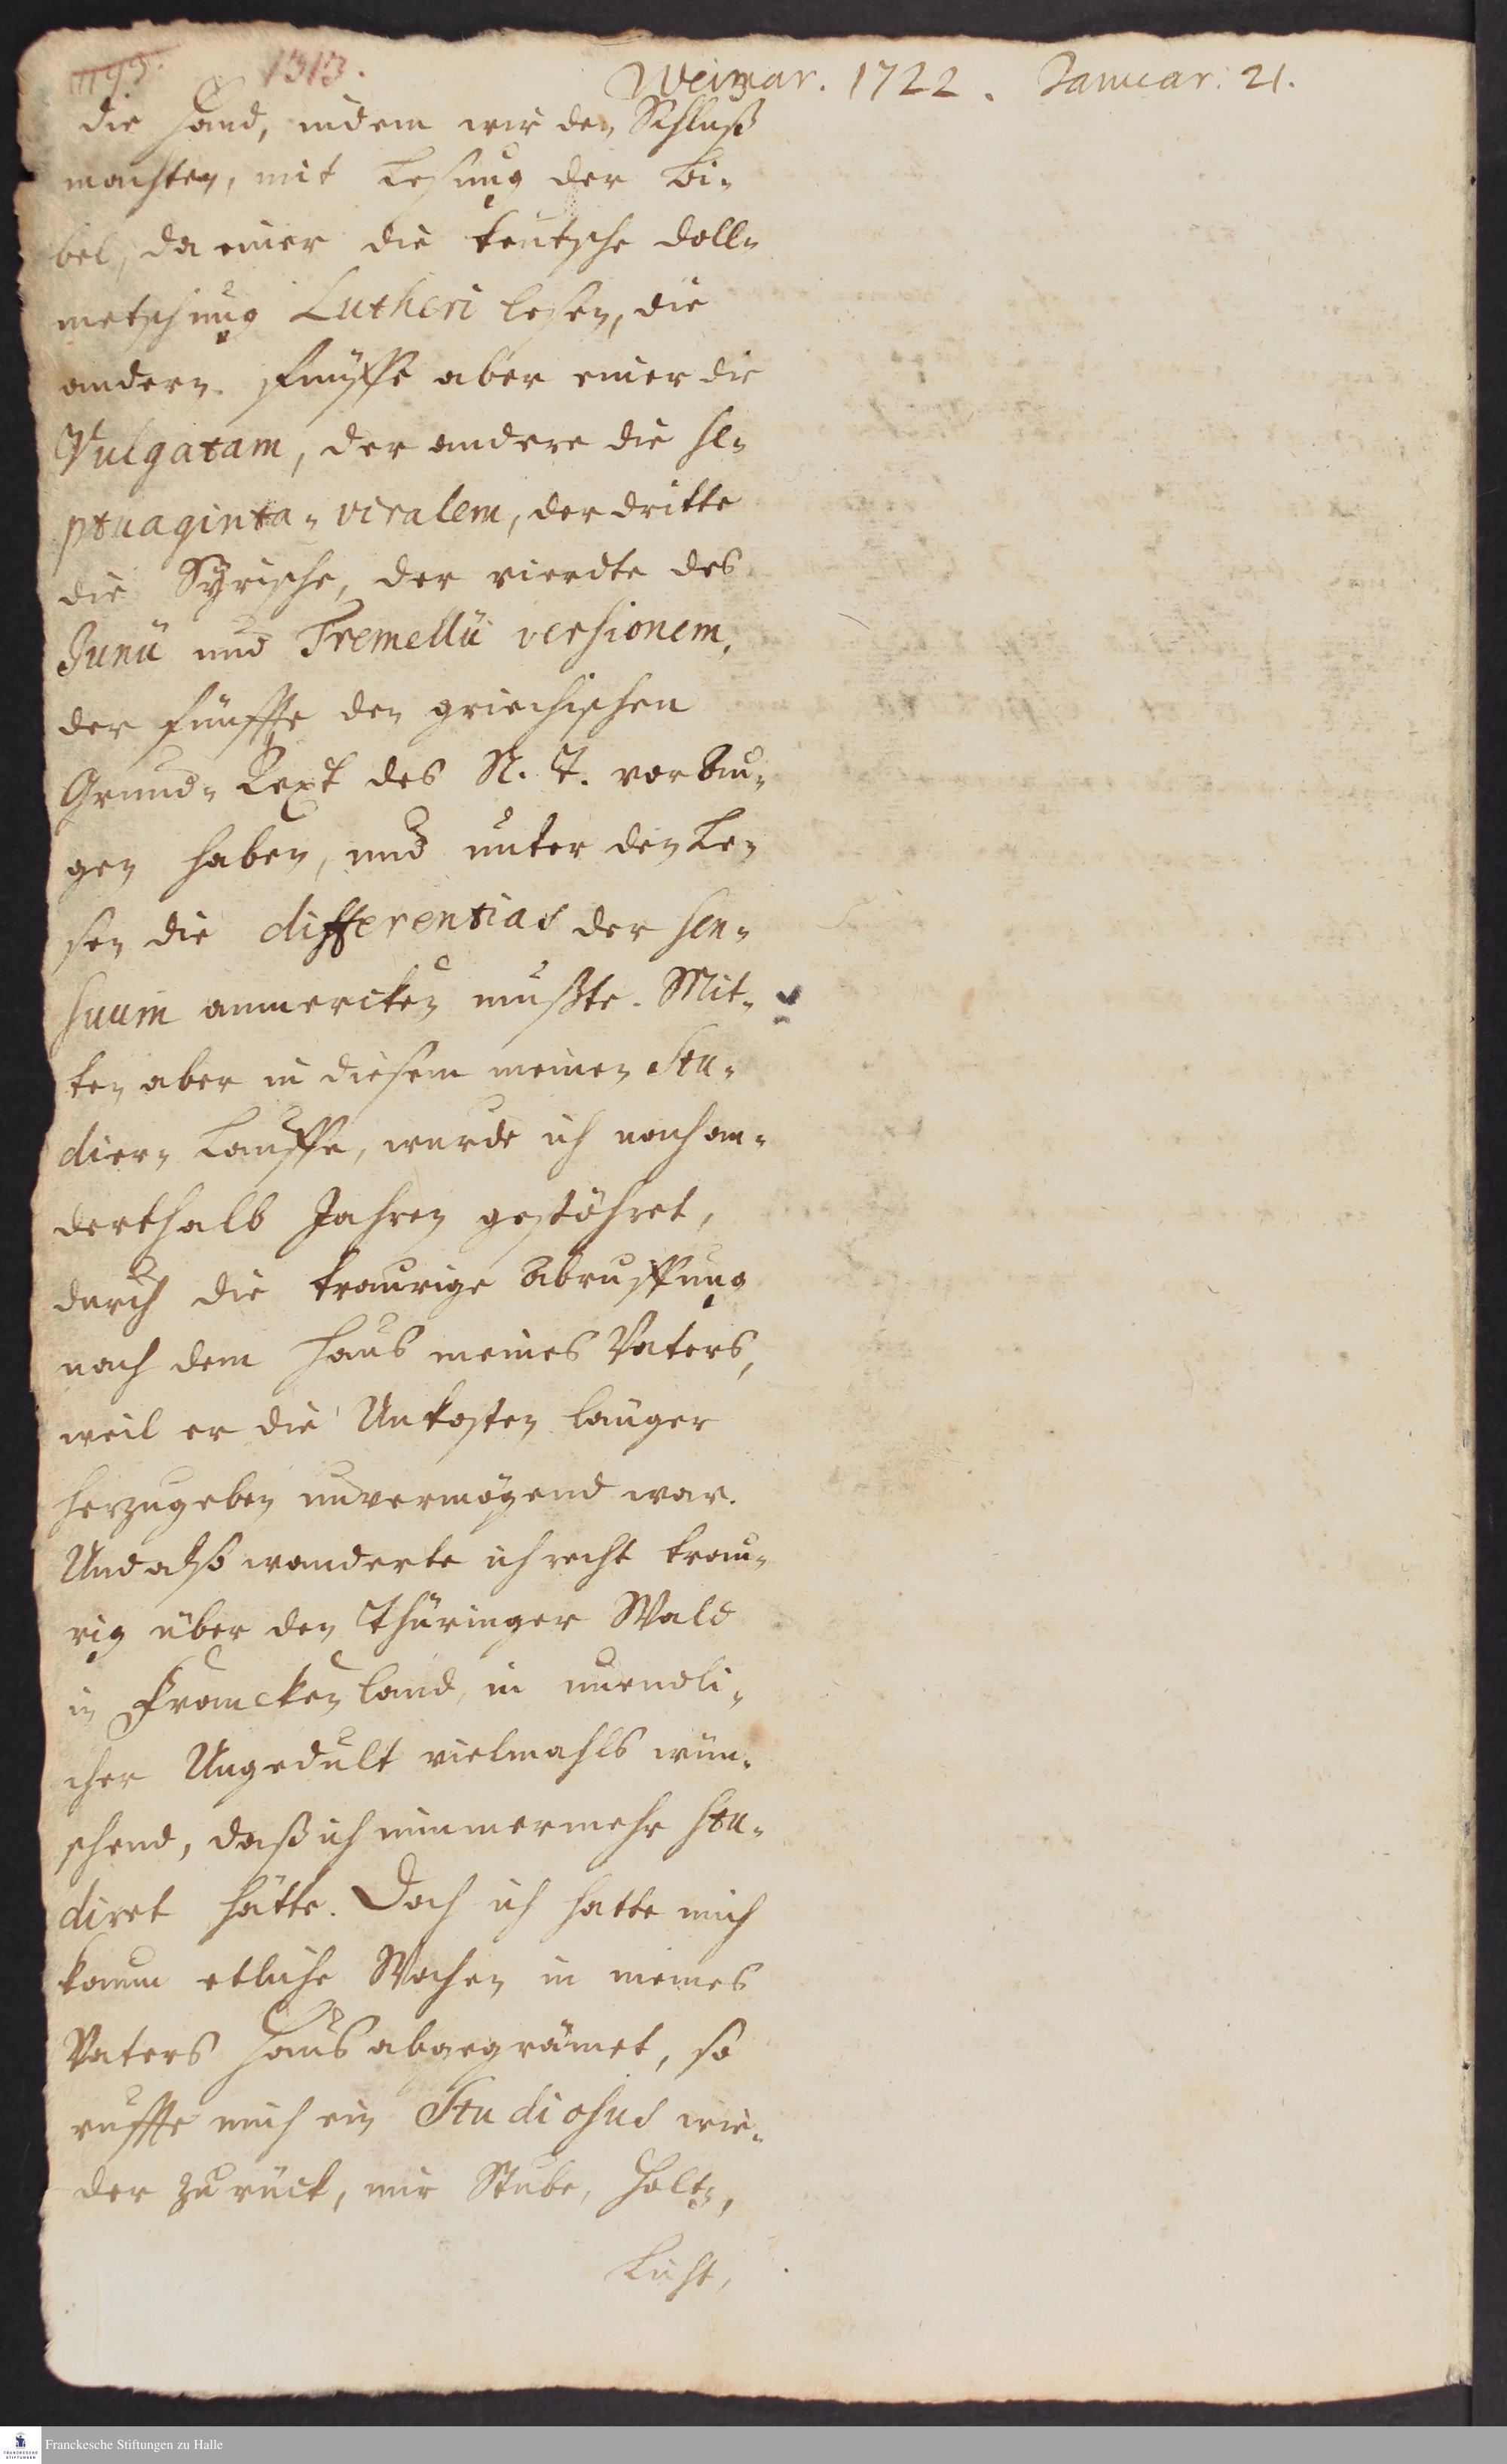 1193. 1313.
Weimar. 1722. Januar. 21.
die Hand, indem wir den Schluß
machten, mit Lesung der Bi-
bel, da einer die teutsche Doll-
metschung Lutheri lesen, die
andern fünffe aber einer die
Vulgatam, der andere die Se-
ptuaginta-viralem, der dritte
die Syrische, der vierdte des
Junii und Tremellii versionem,
der fünffte den griechischen
Grund-Text des N. T. vor Au-
gen haben, und unter den Le-
sen die differentias der sen-
suum anmercken mußte. Mit-
ten aber in diesem meinen Stu-
dier-Lauffe, wurde ich nach an-
derthalb Jahren gestöhret,
durch die traurige Abruffung
nach dem Hauß meines Vaters,
weil er die Unkosten länger
herzugeben unvermögend war.
Und also wanderte ich recht trau-
rig über den Thüringer Wald
in Franckenland, in unendli-
cher Ungedult vielmahls wün-
schend, daß ich nimmermehr stu-
diret hätte. Doch ich hatte mich
kaum etliche Wochen in meines
Vaters Hauß abgegrämet, so
ruffte mich ein Studiosus wie-
der zurück, mir Stube, Holtz,
Licht,
Franckesche Stiftungen zu Halle